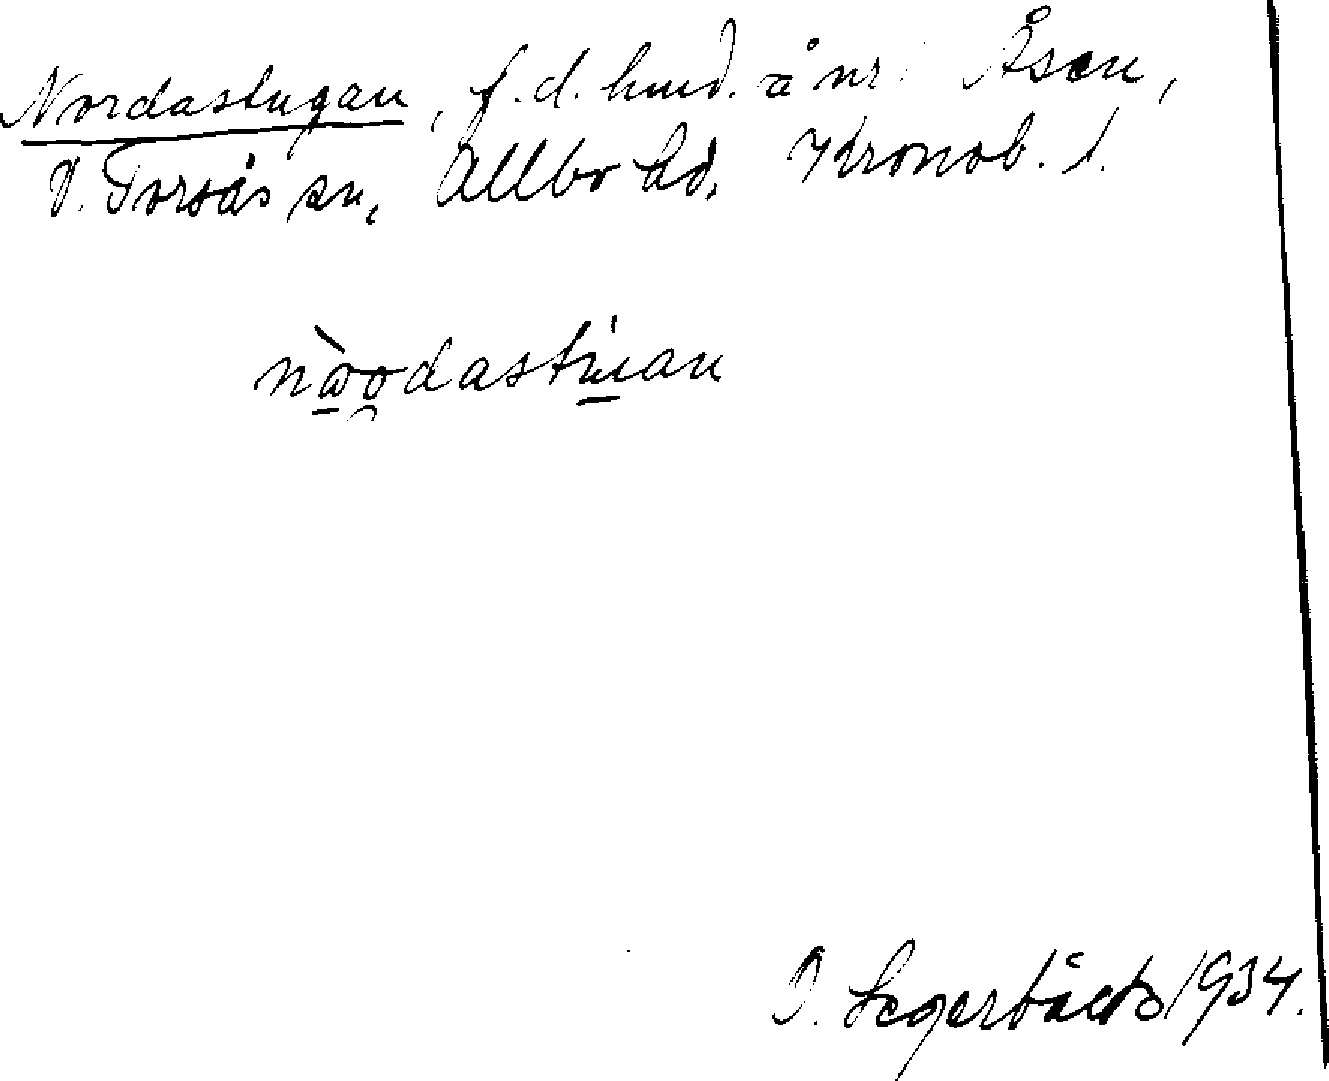 Nordastugan, f.d. hmd. å nr: Åsen,
V. Torsås sn, Allbo hd. Kronob. l.
nàodastuan
J. Segerbäck 1934.